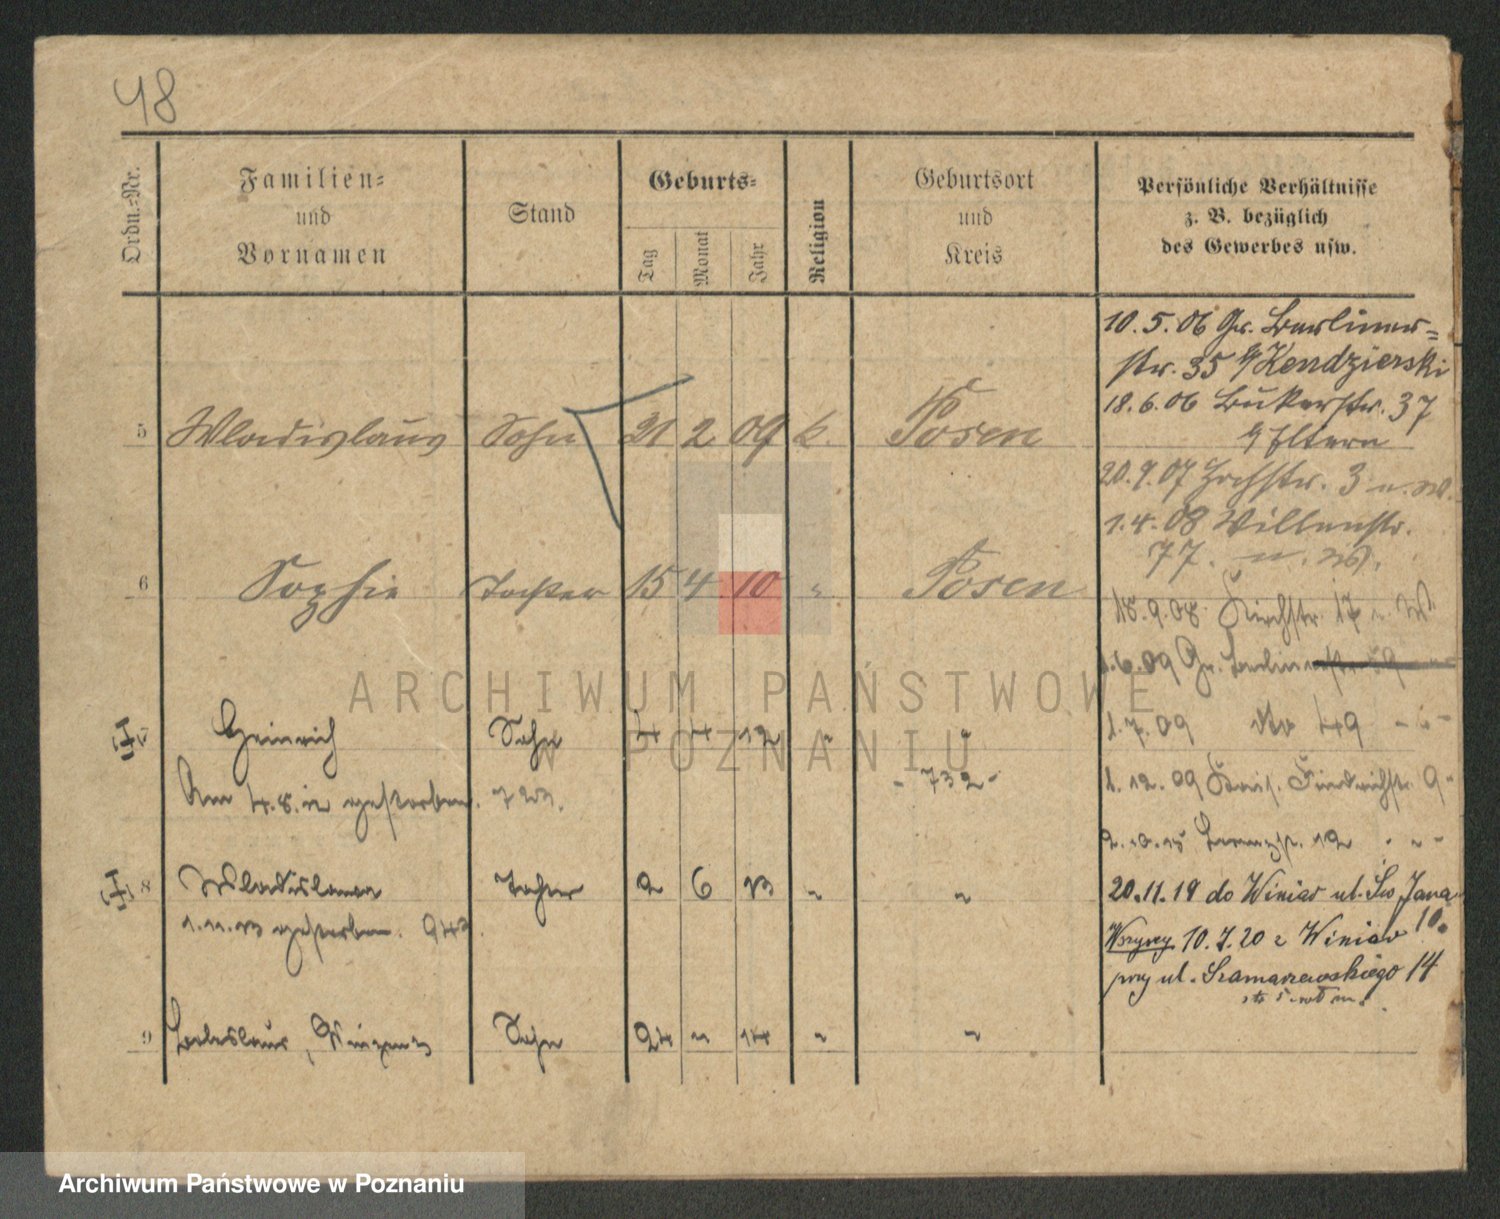 48
Ordn.-Nr.
Familien-
und
Vornamen
Stand
Geburts-
Tag
Monat
Jahr
Religion
Geburtsort
und
Kreis
Persönliche Verhältnisse
z. B. bezüglich
des Gewerbes usw.
10.5.06 Gr. Berliner-
str. 35 b/Kendzierski
18.6.06 Bukerstr. 37
b/Eltern
20.9.07 Hochstr. 3 u. W.
1.4.08 Villenstr.
77. u. W.
18.9.08 Kirchstr. 17 u. W.
1.6.09 Gr. Berlinerstr. 59
1.7.09 dto 49 - " -
1.12.09 Kais. Friedrichstr. 9 -
20.11.19 do Winiar ul. Św Jana
10.
Wszyscy 10.7.20 z Winiar
przy ul. Szamarzewskiego 14
5 Wladislaus Sohn 21 2 09 k. Posen
6 Sophie Tochter 15 4 10 " Posen
Heinrich Sohn 4 4 12 " "
Am 4.8.12 gestorben. 723.
- 732 -
8 Wladislawa Tochter 2 6 13 " "
1.11.13 gestorben. 943.
9 Boleslaus, Vinzenz Sohn 24 " 14 " "
ARCHIWUM PAŃSTWOWE
W POZNANIU
Archiwum Państwowe w Poznaniu